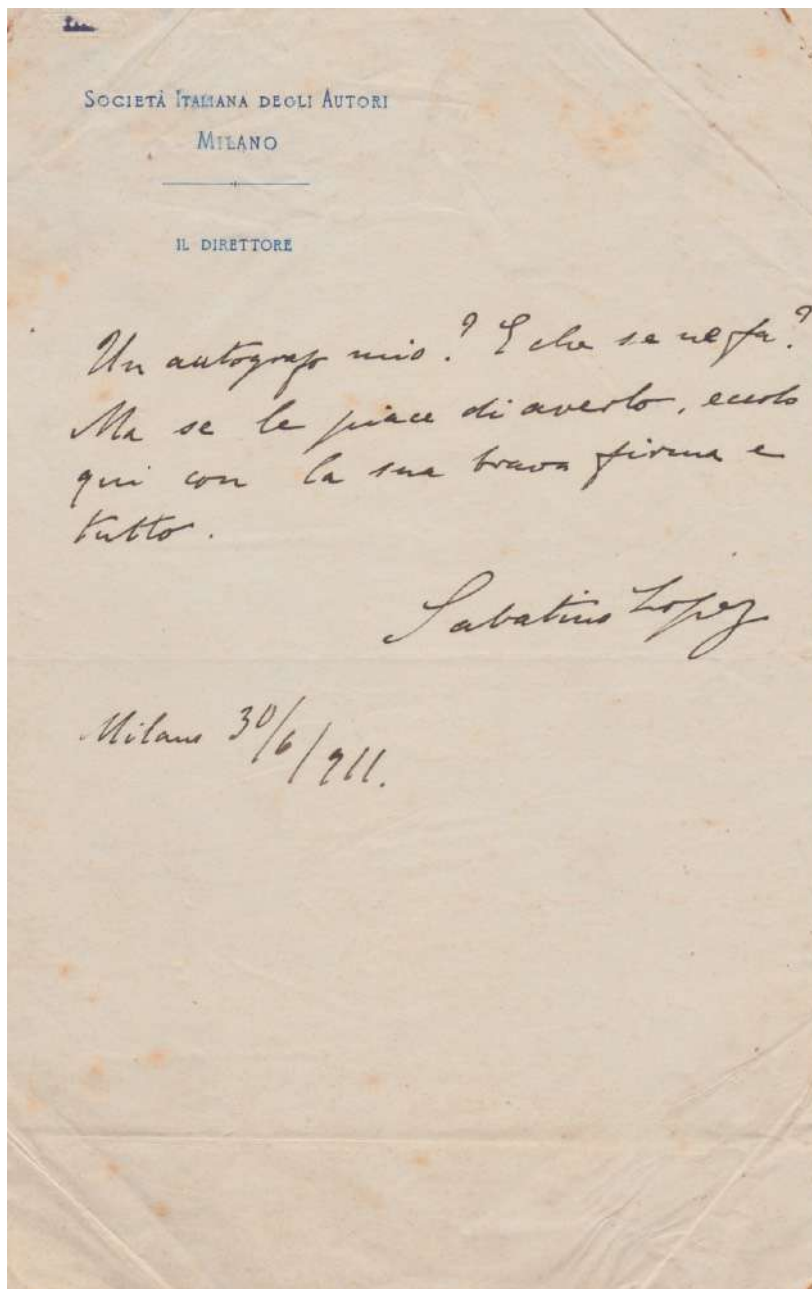 SOCIETÀ ITALIANA DEGLI AUTORI
MILANO
IL DIRETTORE
Un autografo mio? E che se ne fa?
Ma se le piace di averlo, eccolo
qui con la sua brava firma e
tutto.
Sabatino Lopez
Milano 30/6/911.